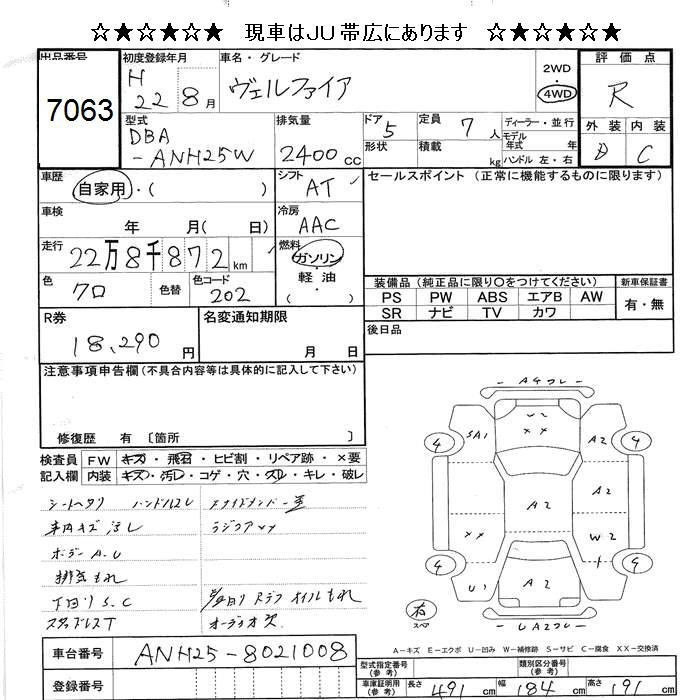 ☆★☆★☆★ 現車はJU帯広にあります ☆★☆★☆★
出品番号 初度登録年月 車名・グレード 評価点
7063 H 22 8月 ヴェルファイア 2WD 4WD R
型式 排気量 ドア 5 定員 7人 ディーラー・並行 外装 内装
DBA -ANH25W 2400cc 形状 積載 kg モデル年式 年 ハンドル 左・右 D C
車歴 自家用・( ) シフト AT セールスポイント (正常に機能するものに限ります)
車検 年 月( 日) 冷房 AAC
走行 22万8千872km 燃料 ガソリン・軽油・
色 クロ 色替 色コード 202
装備品 (純正品に限り○をつけてください) 新車保証書
PS PW ABS エアB AW 有・無
SR ナビ TV カワ
R券 18,290円 名変通知期限 月 日 後日品
注意事項申告欄(不具合内容等は具体的に記入して下さい)
修復歴 有 〔箇所 〕
検査員記入欄 FW キズ・飛石・ヒビ割・リペア跡・×要
内装 キズ・汚レ・コゲ・穴・スレ・キレ・破レ
シートヘタリ ハンドルスレ
車内キズ汚レ ラジコア××
ボデーA.U
排気もれ
下回りS.C オイルもれ
スタッドレスT オーディオ欠
A4 U2 ×× SA1 A2 A2 A2 ×× W2 U1 A2 UA2
4 4 4 4
右 スペア
A-キズ E-エクボ U-凹み W-補修跡 S-サビ C-腐食 XX-交換済
車台番号 ANH25-8021008
登録番号
型式指定番号(参考) 類別区分番号(参考)
車庫証明用(参考) 長さ 491cm 幅 184cm 高さ 191cm